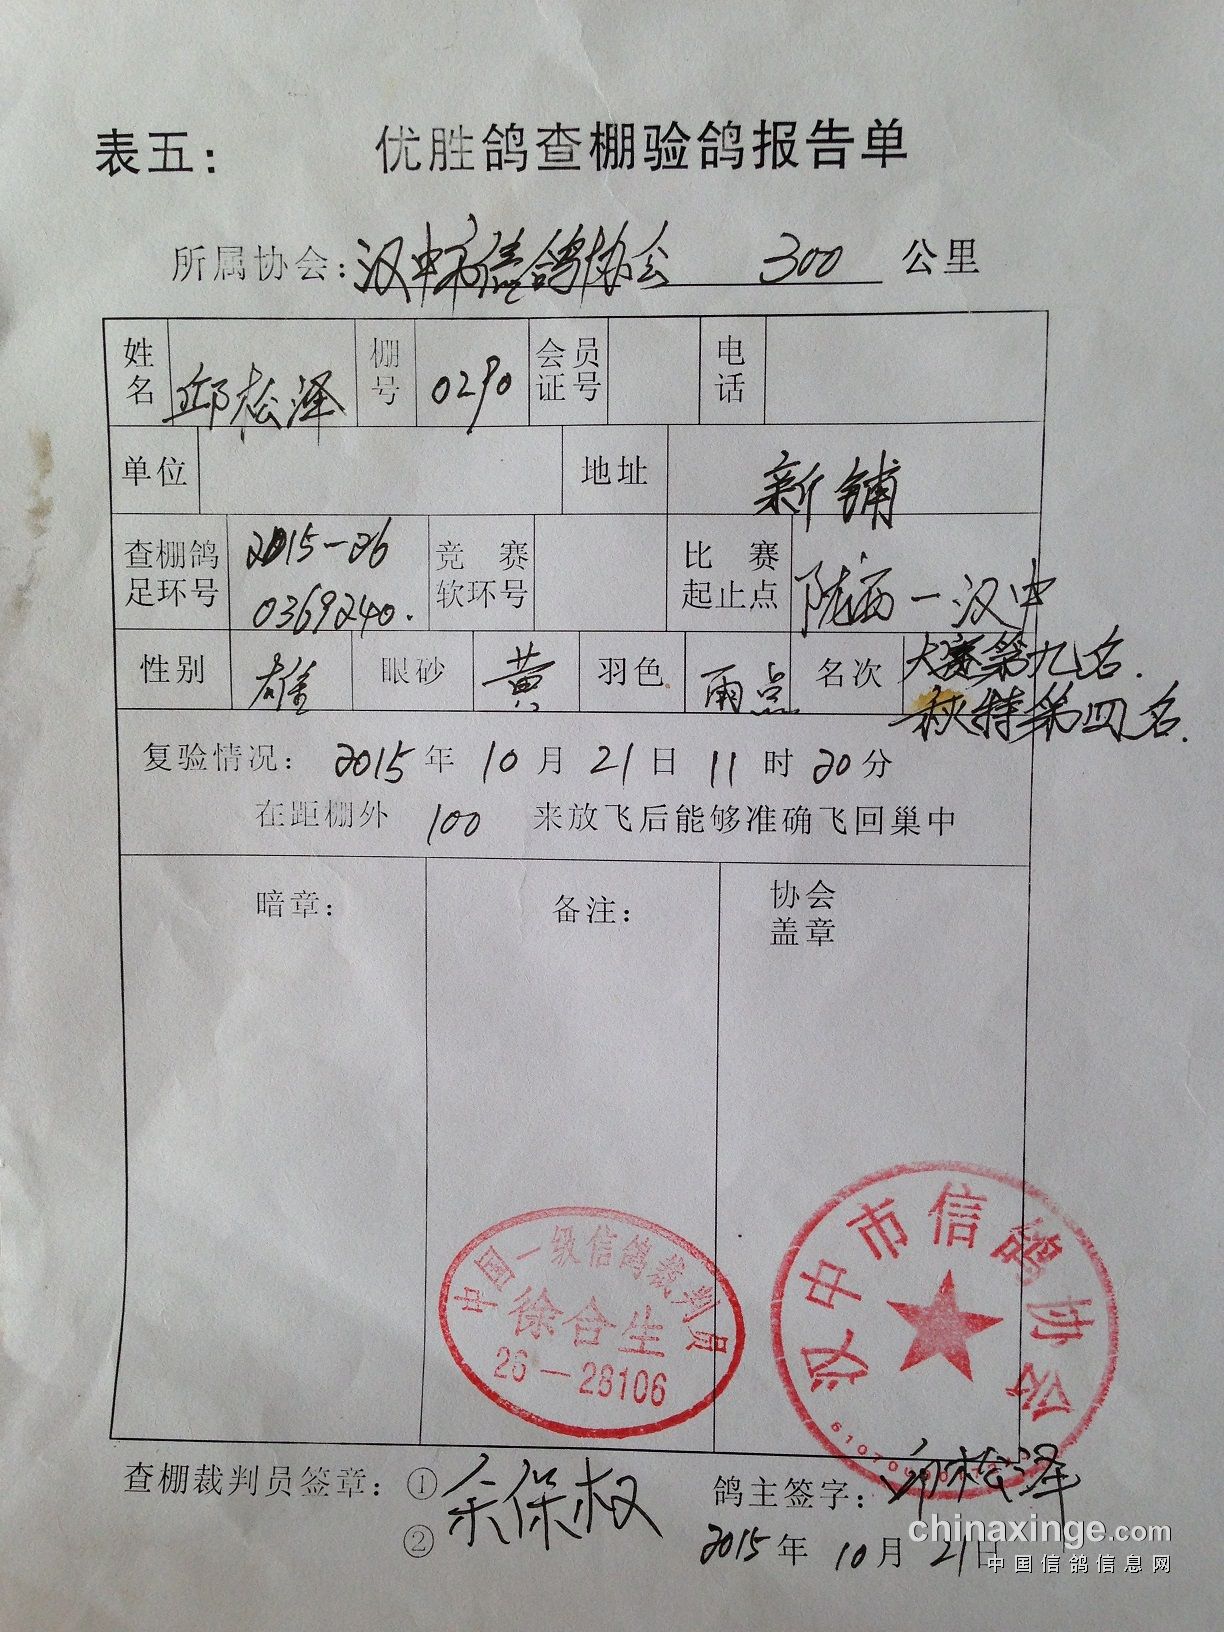 表五： 优胜鸽查棚验鸽报告单
所属协会：汉中市信鸽协会 300 公里
姓名 邱松泽 棚号 0290 会员证号 电话
单位 地址 新铺
查棚鸽足环号 2015-26 0369240. 竞赛软环号 比赛起止点 陇西-汉中
性别 雄 眼砂 黄 羽色 雨点 名次 大赛第九名.
秋特第四名.
复验情况：2015年10月21日11时20分
在距棚外 100 来放飞后能够准确飞回巢中
暗章： 备注： 协会盖章
中国一级信鸽裁判员
徐合生
26-28106
汉中市信鸽协会
查棚裁判员签章：① 余保权 鸽主签字：邱松泽
② 2015年10月21日
chinaxinge.com
中国信鸽信息网